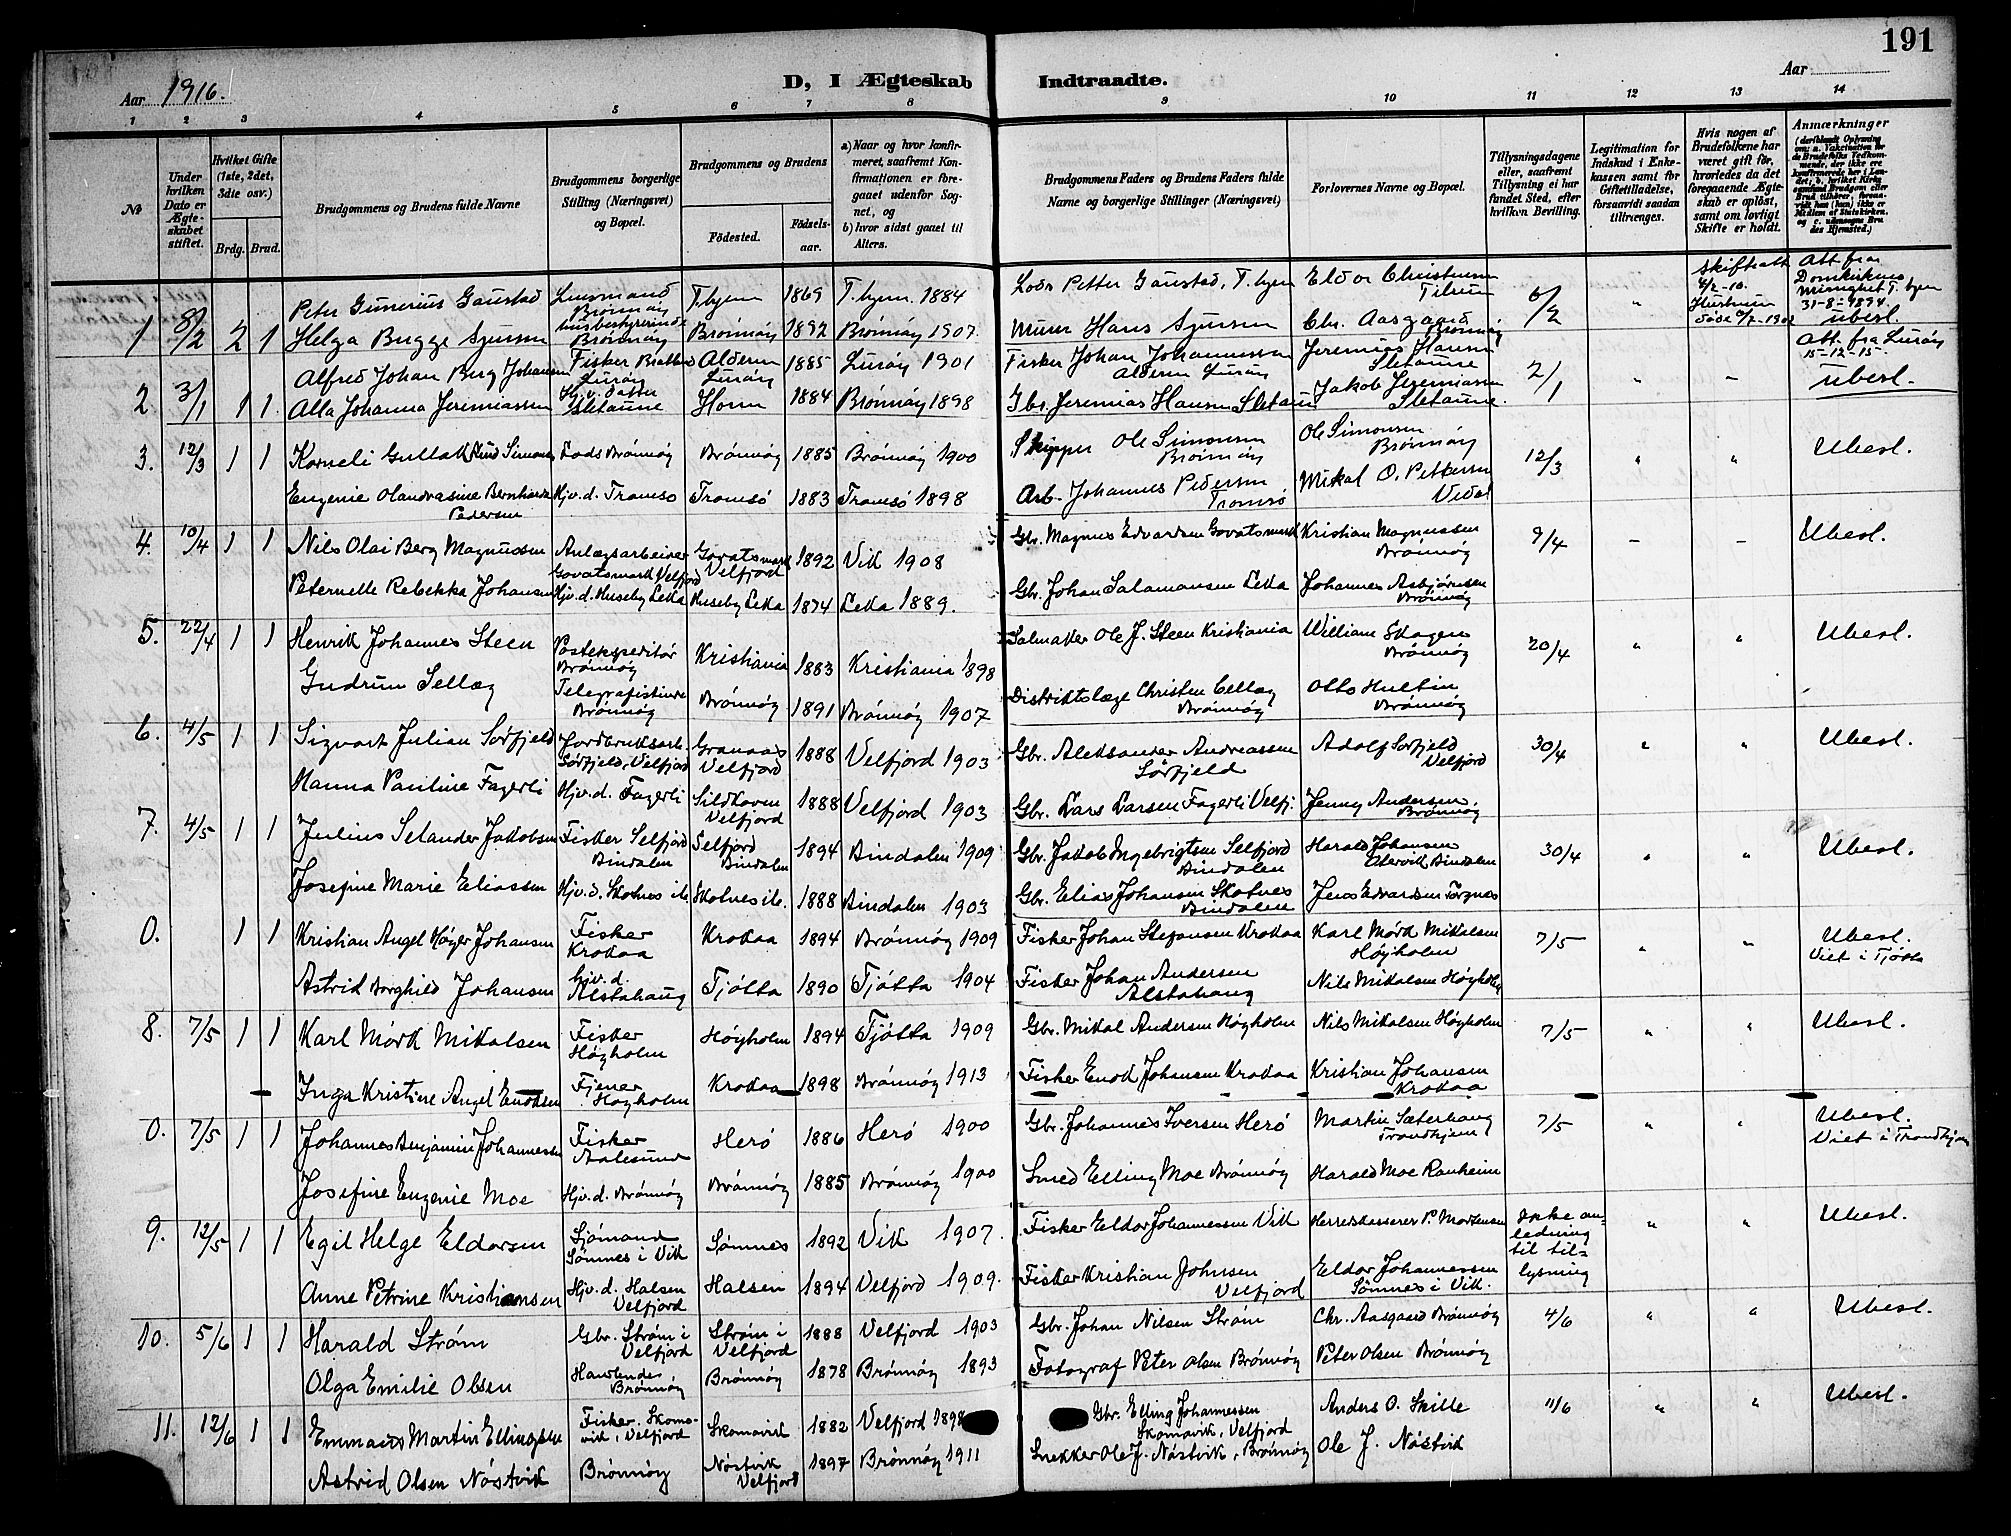 191
D, I Ægteskab Indtraadte.
Aar 1916.
Aar
1 2 3 4 5 6 7 8 9 10 11 12 13 14
№
Under hvilken Dato er Ægteskabet stiftet.
Hvilket Gifte (1ste, 2det, 3die osv.)
Brdg. Brud.
Brudgommens og Brudens fulde Navne
Brudgommens borgerlige Stilling (Næringsvei) og Bopæl.
Brudgommens og Brudens
Fødested.
Fødselsaar.
a) Naar og hvor konfirmeret, saafremt Konfirmationen er foregaaet udenfor Sognet, og
b) hvor sidst gaaet til Alters.
Brudgommens Faders og Brudens Faders fulde Navne og borgerlige Stillinger (Næringsvei)
Forlovernes Navne og Bopæl.
Tillysningsdagene eller, saafremt Tillysning ei har fundet Sted, efter hvilken Bevilling.
Legitimation for Indskud i Enkekassen samt for Giftetilladelse, forsaavidt saadan tiltrænges.
Hvis nogen af Brudefolkene har været gift før, hvorledes da det foregaaende Ægteskab er opløst, samt om lovligt Skifte er holdt.
Anmærkninger
1 8/2 2 1 Peter Gunerius Gaustad Lensmand Brønnøy T.hjem 1869 T.hjem 1884 Lods Petter Gaustad, T.hjem Eldor Christensen Tilrum 6/2 " Skifteatt 4/2-10. Att fra Domkirkens Menighet T.hjem 31-8-1894. ubesl.
Helga Bugge Sjursen husbestyrerinde Brønnøy Brønnøy 1892 Brønnøy 1907. Murer Hans Sjursen Chr. Aasgaard Brønnøy
2. 3/1 1 1. Alfred Johan Berg Johansen Fisker Lurøy Alderen Lurøy 1885 Lurøy 1901 Fisker Johan Johannessen Alderen Lurøy Jeremias Hansen Sletaune 2/1 " - Att. fra Lurøy 15-12-15. ubesl.
Alla Johanna Jeremiassen Sletaune Horn 1884 Brønnøy 1898 Gbr. Jeremias Hansen Sletaune Jakob Jeremiassen Sletaune.
3. 12/3 1 1 Korneli Gullak Simonsen Lods Brønnøy Brønnøy 1885 Brønnøy 1900 Skipper Ole Simonsen Brønnøy Ole Simonsen Brønnøy 12/3 " " Ubesl.
Eugenie Olandrasine Bernhardine Pedersen Hjv.d. Tromsø Tromsø 1883 Tromsø 1898 Arb. Johannes Pedersen Tromsø Mikal O. Pettersen
4. 10/4 1 1 Nils Olai Berg Magnussen Anlægsarbeider Govatsmark Velfjord Govatsmark Velfjord 1892 Vik 1908 Gbr. Magnus Edvardsen Govatsmark Kristian Magnussen Brønnøy 9/4 - - Ubesl.
Peternelle Rebekka Johansen Hjv.d. Huseby Leka Huseby Leka 1874 Leka 1889. Gbr. Johan Salamonsen Leka Johannes Asbjørnsen Brønnøy
5. 22/4 1 1 Henrik Johannes Steen Postekspeditør Brønnøy Kristiania 1883 Kristiania 1898 Salmaker Ole J. Steen Kristiania William Skogen Brønnøy 20/4 " " Ubesl.
Gudrun Sellæg Telegrafistinde Brønnøy Brønnøy 1891 Brønnøy 1907 Distriktslæge Christen Sellæg Brønnøy Otto Hultin Brønnøy
6. 4/5 1 1 Sigvart Julian Sørfjeld Jordbruksarb. Sørfjeld, Velfjord Granaas Velfjord 1888 Velfjord 1903 Gbr. Aleksander Andreassen Sørfjeld Adolf Sørfjeld Velfjord 30/4 " " Ubesl.
Hanna Pauline Fagerli Hjv.d. Fagerli Sildhaven Velfjord 1888 Velfjord 1903 Gbr. Lars Larsen Fagerli Velfj. Jenny Andersen Brønnøy
7. 4/5 1 1 Julius Selander Jakobsen Fisker Selfjord Bindalen Selfjord Bindalen 1894 Bindalen 1909 Gbr. Jakob Ingebrigtsen Selfjord Bindalen Harald Johansen Bindalen 30/4 " " Ubesl.
Josefine Marie Eliassen Hjv.d. Skotnes ib. Skotnes ib. 1888 Bindalen 1903 Gbr. Elias Johansen Skotnes Bindalen Jens Edvardsen Torgnes
0. 1 1 Kristian Angel Høyer Johansen Fisker Krokaa Krokaa 1894 Brønnøy 1909 Fisker Johan Stefansen Krokaa Karl Mørk Mikalsen Høyholm 7/5 " " Ubesl. Viet i Tjøtta
Astrid Borghild Johansen Hjv.d. Alstahaug Tjøtta 1890 Tjøtta 1904 Fisker Johan Andersen Alstahaug Nils Mikalsen Høyholm
8. 7/5 1 1 Karl Mørk Mikalsen Fisker Høyholm Høyholm 1894 Tjøtta 1909 Gbr. Mikal Andersen Høyholm Nils Mikalsen Høyholm 7/5 " " Ubesl.
Inga Kristine Angel Enoksen Tjener Høyholm Krokaa 1898 Brønnøy 1913 Fisker Enok Johansen Krokaa Kristian Johansen Krokaa
0. 7/5 1 1 Johannes Benjamin Johannessen Fisker Aalesund Herø 1886 Herø 1900 Gbr. Johannes Iversen Herø Martin Sæterhaug Trondhjem 7/5 " " Ubesl. Viet i Trondhjem
Josefine Eugenie Moe Hjv.d. Brønnøy Brønnøy 1885 Brønnøy 1900 Smed Elling Moe Brønnøy Harald Moe Ranheim
9. 12/5 1 1 Egil Helge Eldorsen Sjømand Sømnes i Vik Sømnes 1892 Vik 1907. Fisker Eldor Johannessen Vik Herredskasserer P. Mortensen Ikke anledning til tillysning " " Ubesl.
Anne Petrine Kristiansen Hjv.d. Halsen Velfjord Halsen 1894 Velfjord 1909. Fisker Kristian Johnsen Velfjord Eldor Johannessen Sømnes i Vik.
10. 5/6 1 1 Harald Strøm Gbr. Strøm i Velfjord Strøm i Velfjord 1888 Velfjord 1903 Gbr. Johan Nilsen Strøm Chr. Aasgaard Brønnøy 4/6 " " Ubesl.
Olga Emilie Olsen Brønnøy Brønnøy 1878 Brønnøy 1893 Fotograf Peter Olsen Brønnøy Peter Olsen Brønnøy
11. 12/6 1 1 Emmaus Martin Ellingsen Fisker. Skomovik i Velfjord Skomovik 1882 Velfjord 1898 Gbr. Elling Johannessen Skomovik, Velfjord Anders O. Skille 11/6 " " Ubesl.
Astrid Olsen Nøstvik Brønnøy Nøstvik Velfjord 1897 Brønnøy 1911 Snekker Ole J. Nøstvik, Brønnøy Ole J. Nøstvik